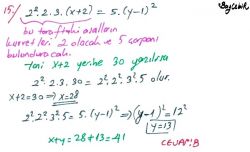 15.) 2².2.3.(x+2) = 5.(y-1)²
bu taraftaki asalların
kuvvetleri 2 olacak ve 5 çarpanı
bulunduracak.
Yani x+2 yerine 30 yazılırsa
2².2.3.30 = 2².2².3².5 olur.
x+2=30 ⇒ x=28
2².2².3².5 = 5.(y-1)² ⇒ (y-1)² = 12²
y=13
x+y = 28+13 = 41
CEVAP: B